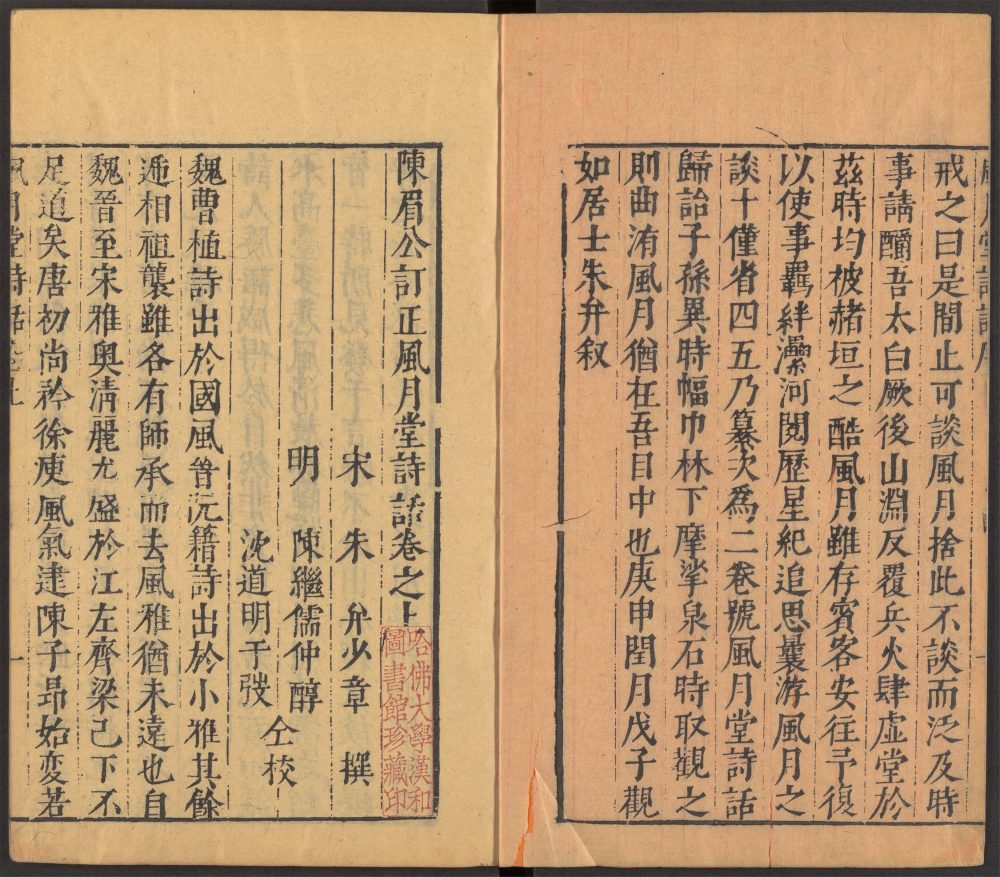 戒之曰是間止可談風月捨此不談而泛及時
事請釂吾太白厥後山淵反覆兵火肆虐堂於
茲時均被赭垣之酷風月雖存賓客安往予復
以使事羈絆灤河閱歷星紀追思曩游風月之
談十僅省四五乃纂次為二卷號風月堂詩話
歸詒子孫異時幅巾林下摩挲泉石時取觀之
則曲洧風月猶在吾目中也庚申閏月戊子觀
如居士朱弁叙
陳眉公訂正風月堂詩話卷之上
宋 朱 弁少章 撰
明 陳繼儒仲醇
沈道明于弢
仝校
魏曹植詩出於國風晉阮籍詩出於小雅其餘
遞相祖襲雖各有師承而去風雅猶未遠也自
魏晉至宋雅奧清麗尤盛於江左齊梁已下不
足道矣唐初尚矜徐庾風氣逮陳子昂始变若
風月堂詩話卷上
一
哈佛大學漢和
圖書館珍藏印